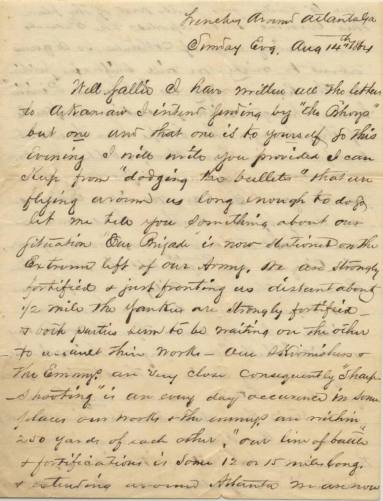 Trenches Around Atlanta Ga
Sunday Evg. Aug 14th 1864
Well Sallie I have written all the letters
to Arkansas I intend sending by "the Bhoys"
but one and that one is to yourself So this
Evening I will write you provided I can
Keep from "dodging the bullets" that are
flying around us long enough to do so
let me tell you something about our
situation "Our Brigade" is now stationed on the
Extreme left of our Army. We are strongly
fortified & just fronting us distant about
1/2 mile the Yankees are strongly fortified –
& both parties seem to be waiting on the other
to assault their works – Our Skirmishers &
the Enemys are very close Consequently "Sharp
Shooting" is an every day occurence In some
places our works & the enemys are within
250 yards of each other, "our line of battle"
& fortifications is some 12 or 15 miles long.
& extending around Atlanta in an now